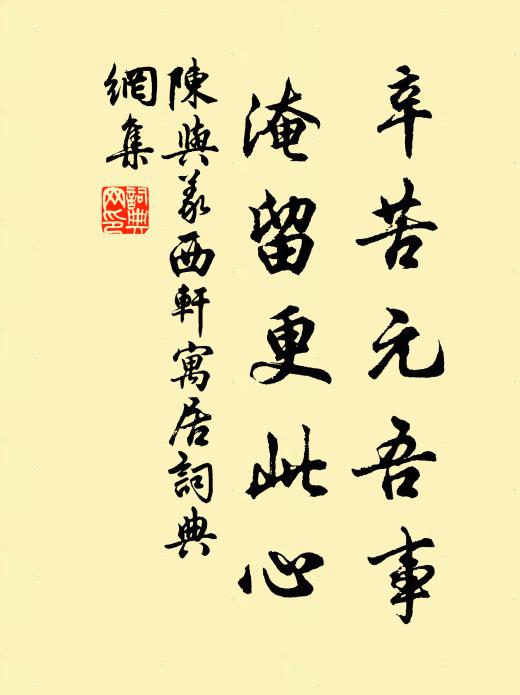 辛苦元吾事
淹留更此心
陳與義西軒寓居詞典
網集
詞典
网印